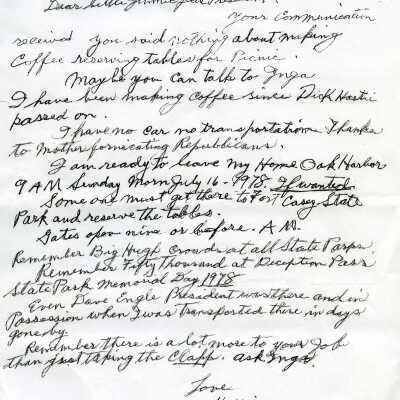 Dear
Your Communication
received you said nothing about making
Coffee reserving tables for Picnic.
Maybe you can talk to Inga
I have been making coffee since Dick
passed on.
I have no car no transportation. Thanks
to Motherfornicating Republicans.
I am ready to leave my Home Oak Harbor
9 AM Sunday Morn July 16 - 1978. If wanted.
Some one must get there to Fort Casey State
Park and reserve the tables.
Gates open nine or before. A.M.
Remember Big High Crowds at all State Parps.
Remember Fifty Thousand at Deception Pass
State Park Memorial Day 1978
Even Dave Engle President was there and in
Possession when I was transported there in days
gone by.
Remember there is a lot more to your Job
than just taking the Clapp. ask Inga.
Love